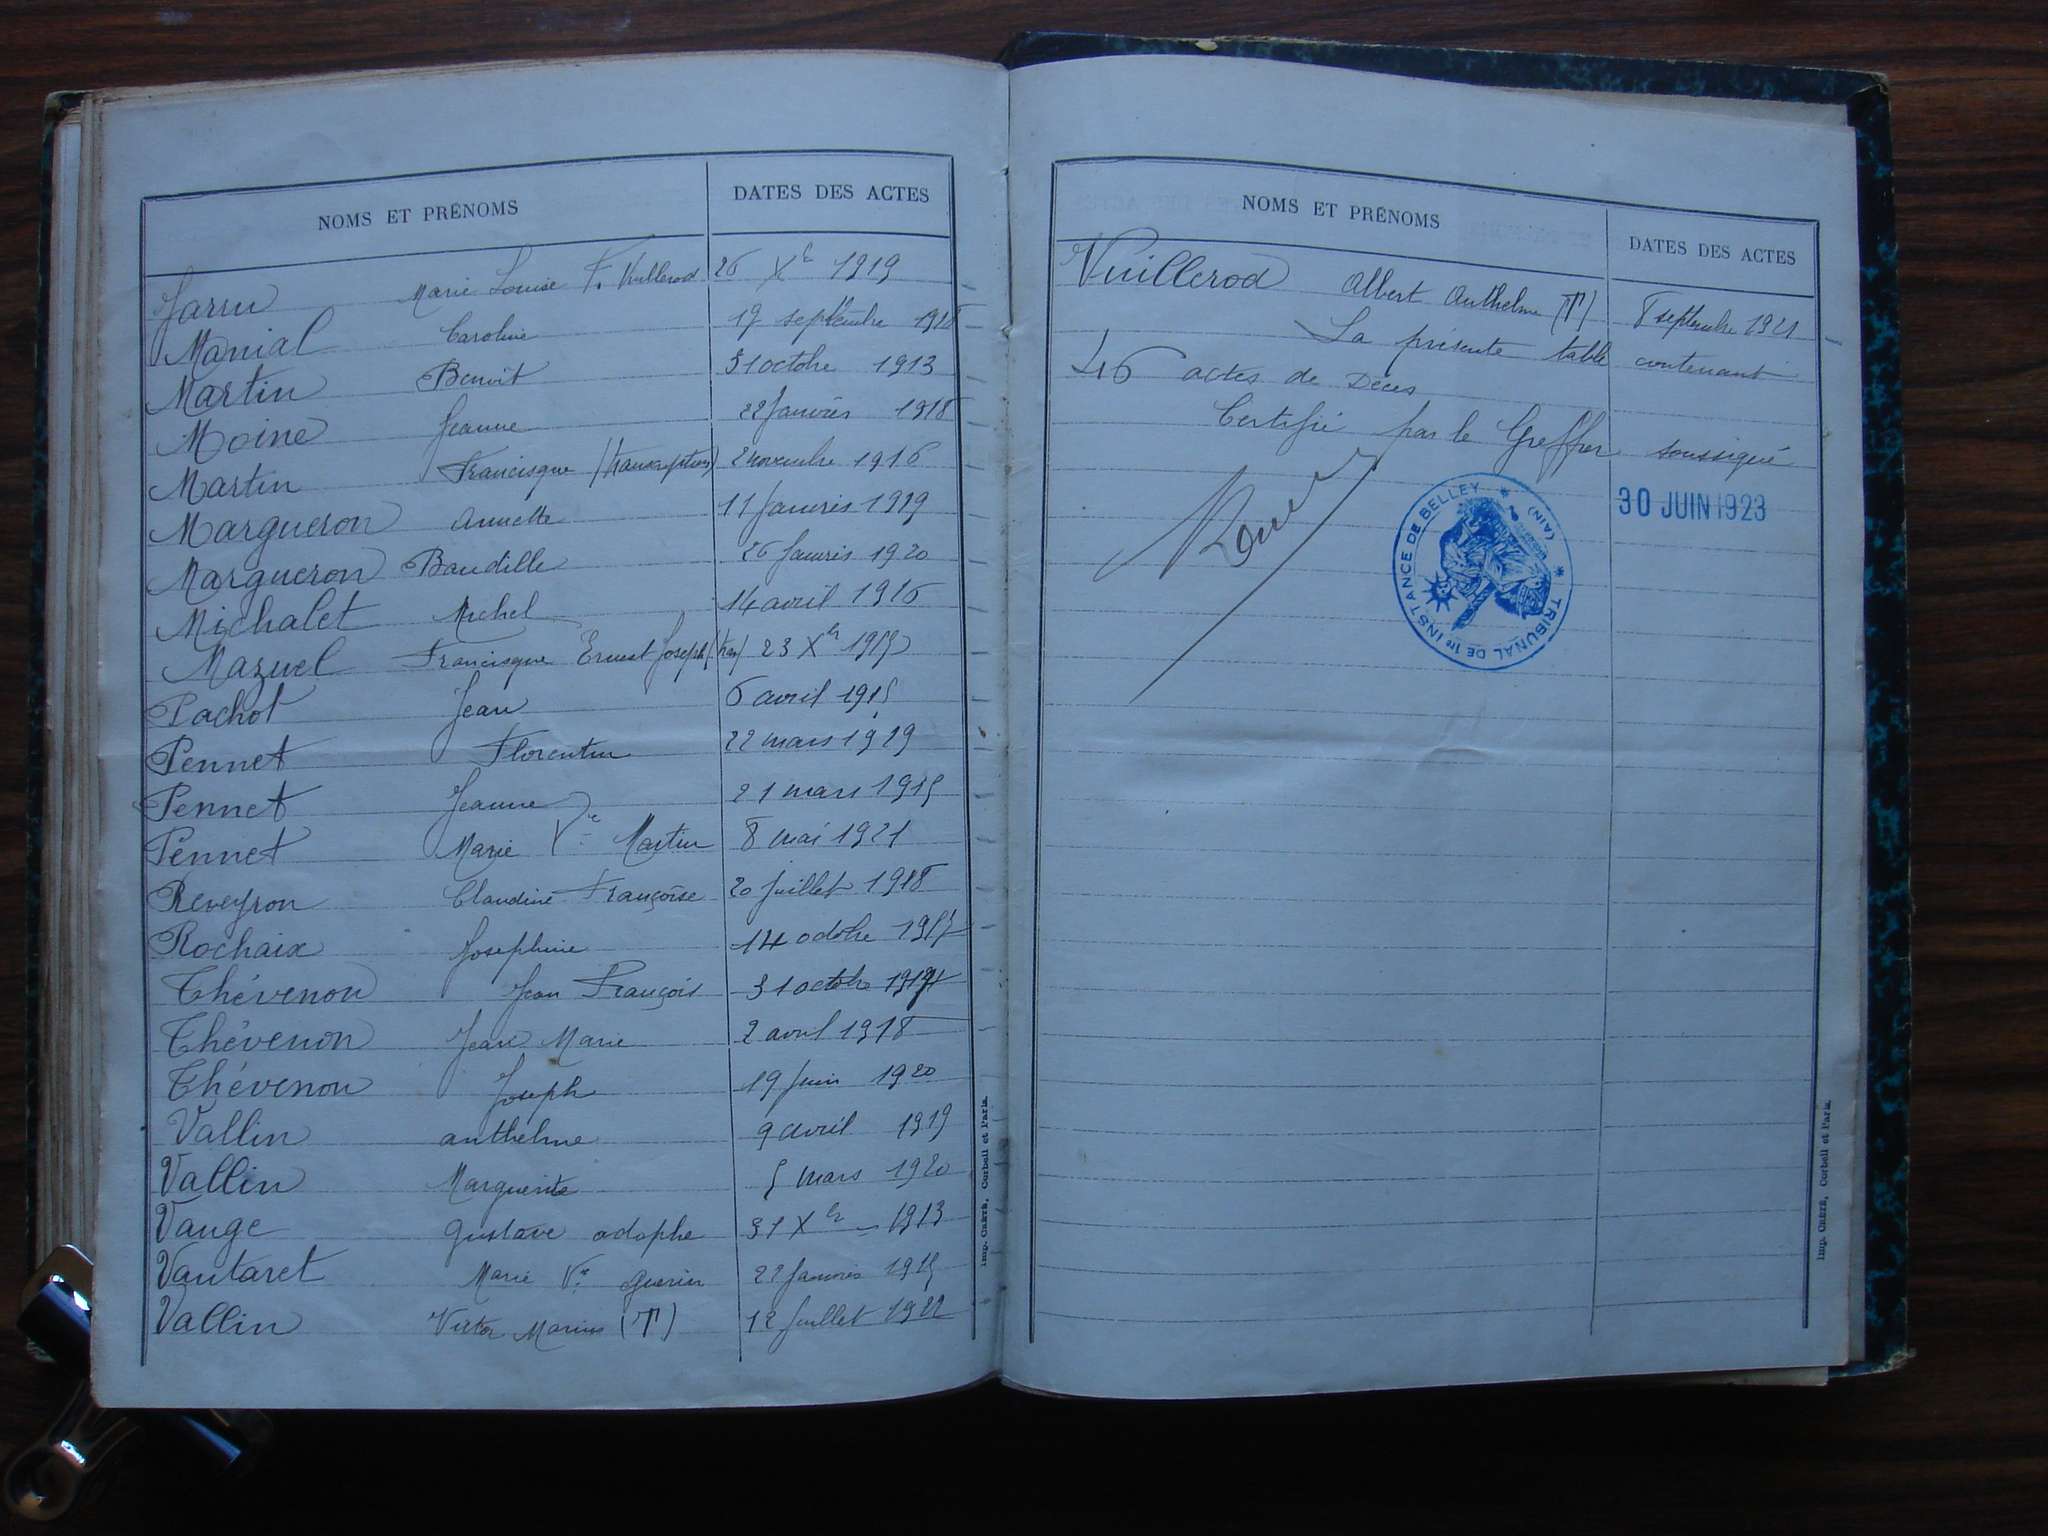 NOMS ET PRÉNOMS DATES DES ACTES
Jarru Marie Louise F. Vuillerod 26 Xbre 1919
Manial Caroline 19 septembre 1918
Martin Benoit 31 octobre 1913
Moine Jeanne 22 Janvier 1918
Martin Francisque (transcription) 2 novembre 1916
Margueron Annette 11 Janvier 1919
Margueron Baudille 26 Janvier 1920
Michalet Michel 14 avril 1916
Mazuel Francisque Ernest Joseph (tran) 23 Xbre 1915
Pachot Jean 6 avril 1915
Pennet Florentin 22 mars 1919
Pennet Jeanne 21 mars 1915
Pennet Marie Vve Martin 8 mai 1921
Reveyron Claudine Françoise 20 Juillet 1918
Rochaix Josephine 14 octobre
Thévenon Jean François 31 octobre
Thévenon Jean Marie 2 avril 1918
Thévenon Joseph 19 Juin 1920
Vallin anthelme 9 avril 1919
Vallin Marguerite 5 mars 1920
Vauge Gustave adophe 31 Xbre 1913
Vautaret Marie Vve Guerin 22 Janvier 1915
Vallin Victor Marius (T) 12 Juillet 1922
Imp. CRÉTÉ, Corbeil et Paris.
NOMS ET PRÉNOMS DATES DES ACTES
Vuillerod Albert Anthelme (T) 8 septembre 1921
La présente table contenant
46 actes de Décès
Certifié par le Greffier soussigné
30 JUIN 1923
TRIBUNAL DE 1re INSTANCE DE BELLEY * (AIN) *
Imp. CRÉTÉ, Corbeil et Paris.